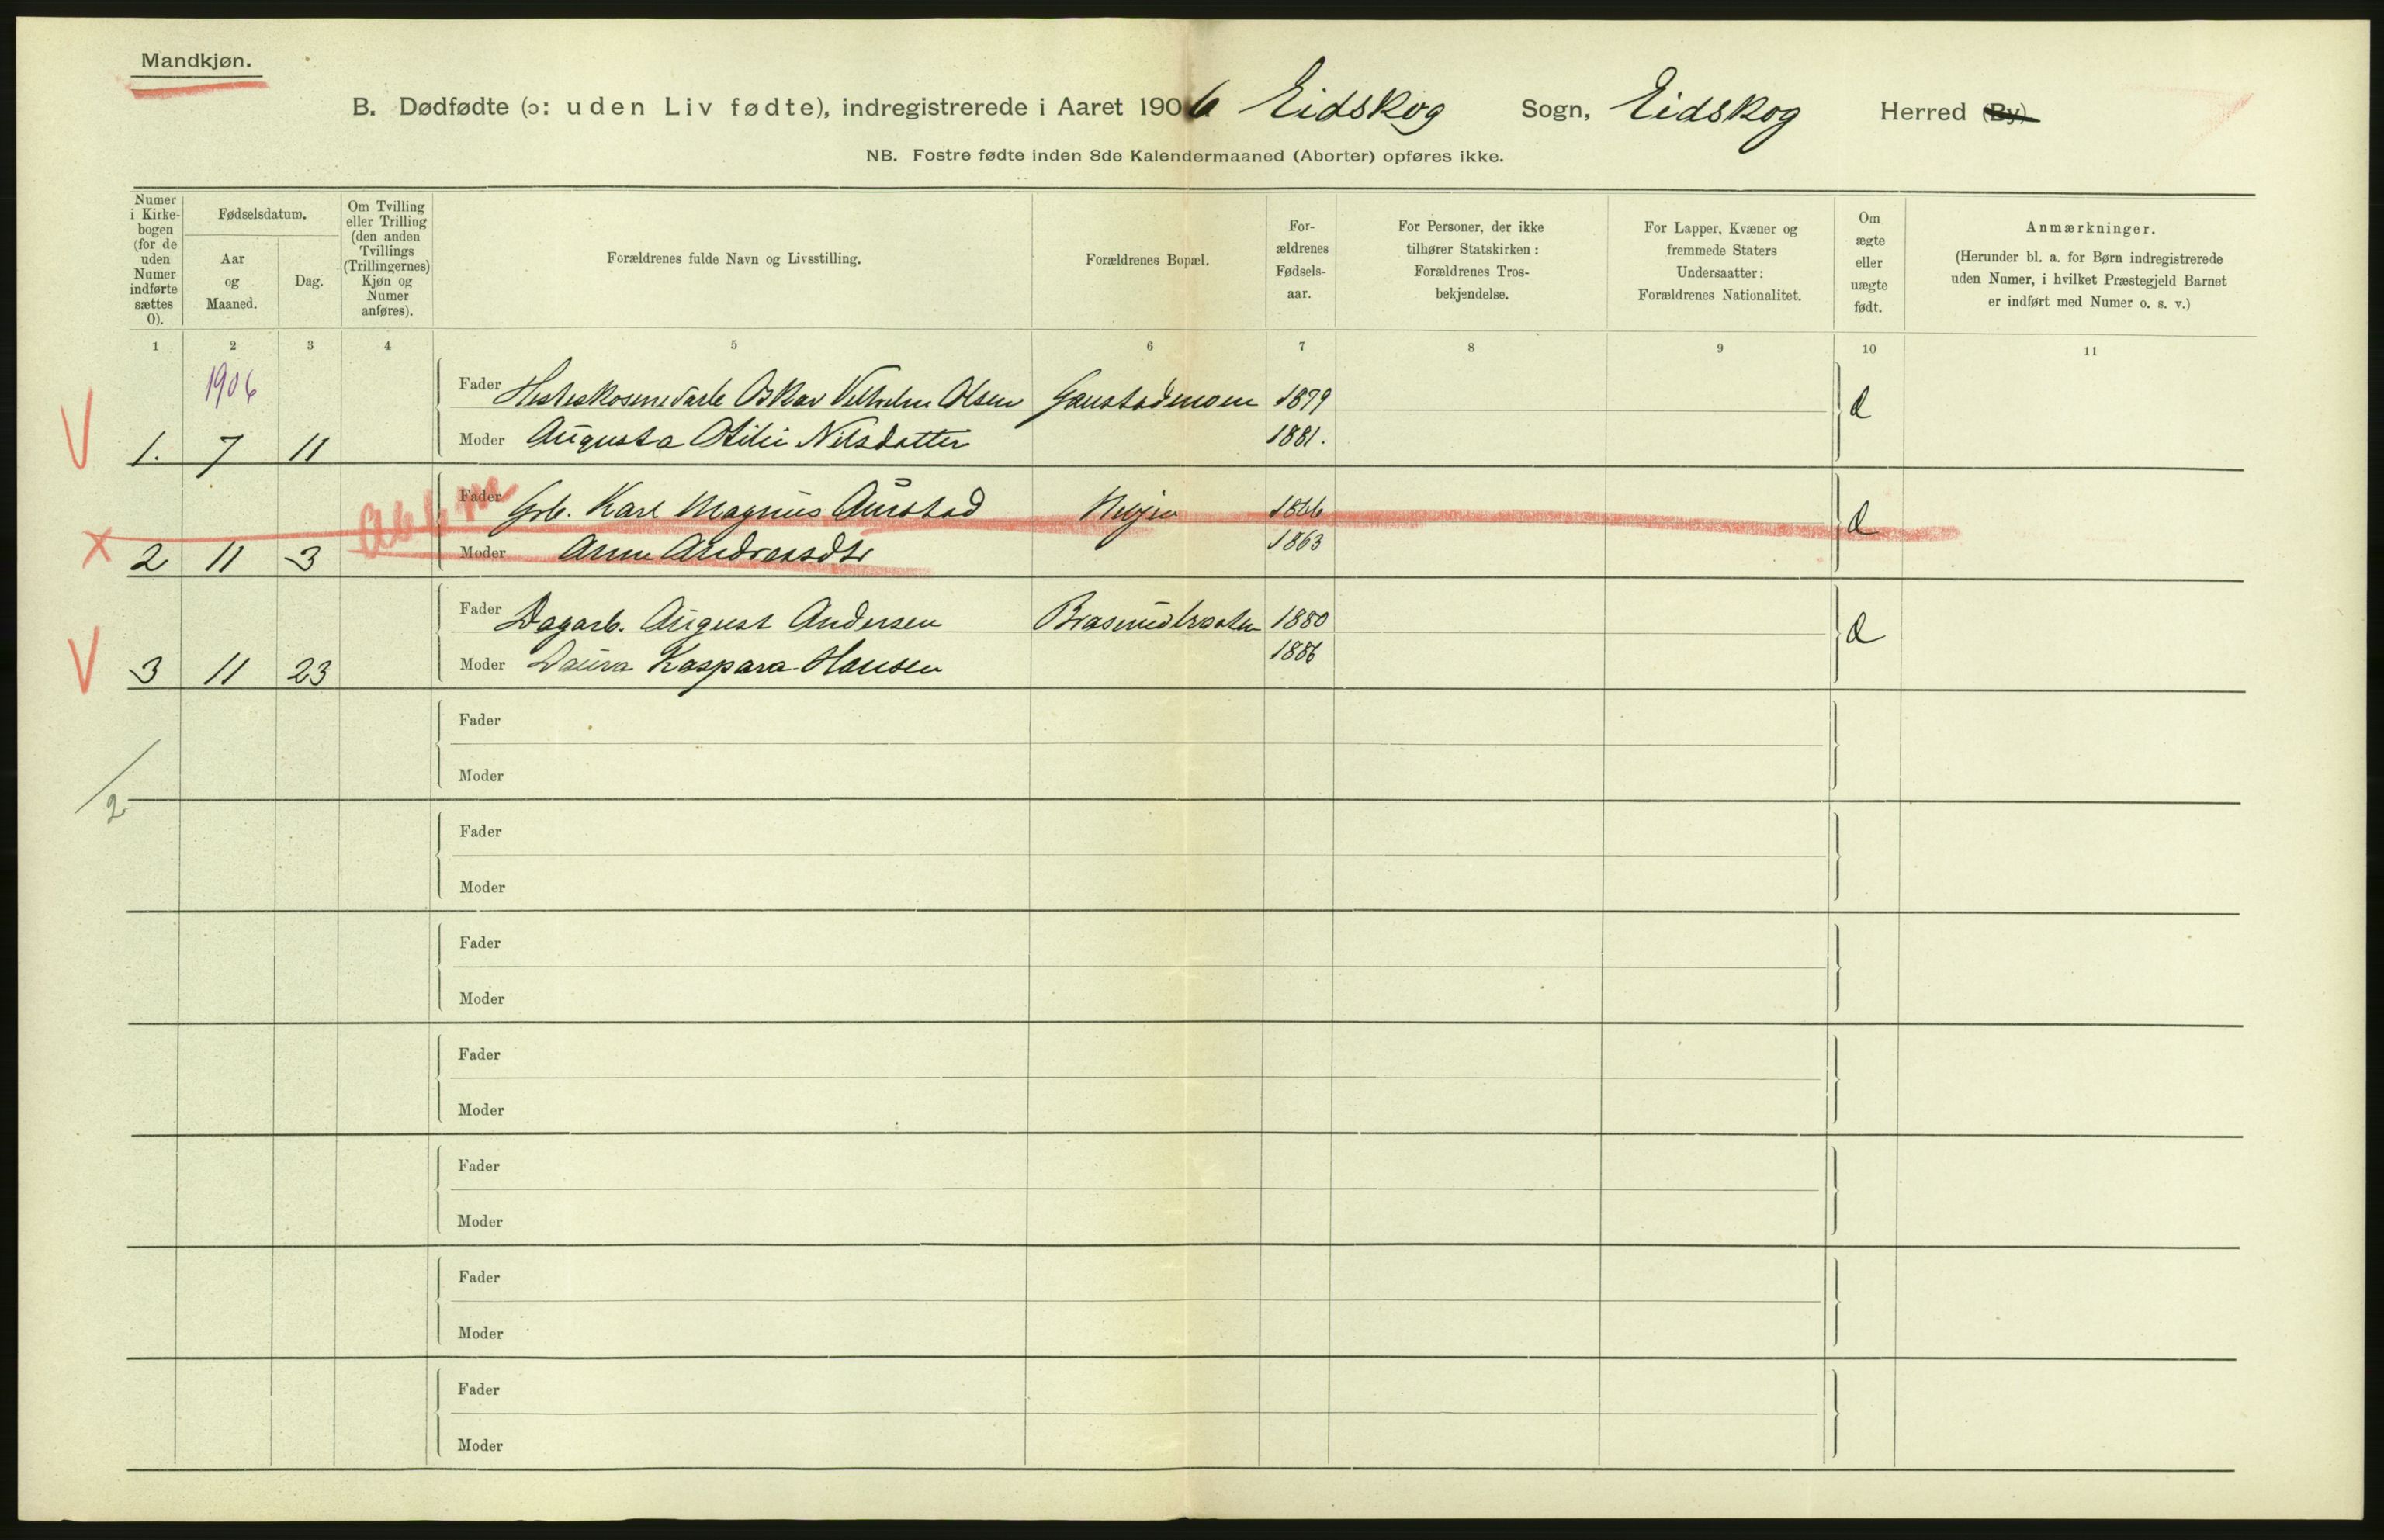 Mandkjøn.
B. Dødfødte (ɔ: uden Liv fødte), indregistrerede i Aaret 1906 Eidskog Sogn, Eidskog Herred (By)
NB. Fostre fødte inden 8de Kalendermaaned (Aborter) opføres ikke.
Numer i Kirke-bogen (for de uden Numer indførte sættes 0).
Fødselsdatum.
Aar og Maaned.
Dag.
Om Tvilling eller Trilling (den anden Tvillings (Trillingernes) Kjøn og Numer anføres).
Forældrenes fulde Navn og Livsstilling.
Forældrenes Bopæl.
For-ældrenes Fødsels-aar.
For Personer, der ikke tilhører Statskirken: Forældrenes Tros-bekjendelse.
For Lapper, Kvæner og fremmede Staters Undersaatter: Forældrenes Nationalitet.
Om ægte eller uægte født.
Anmærkninger.
(Herunder bl. a. for Børn indregistrerede uden Numer, i hvilket Præstegjeld Barnet er indført med Numer o. s. v.)
1 2 3 4 5 6 7 8 9 10 11
1906
Fader Oskar Vilhelm Olsen Gaustadmoen 1879
V 1. 7 11 Moder Augusta Otilie Nilsdatter 1881.
Fader Grb. Karl Magnus Aurstad 1866
x 2 11 3 Moder Anne Andreasdtr 1863
Fader Dagarb. August Andersen 1880
V 3 11 23 Moder Laura Kaspara Hansen 1886
Fader
Moder
2
Fader
Moder
Fader
Moder
Fader
Moder
Fader
Moder
Fader
Moder
Fader
Moder